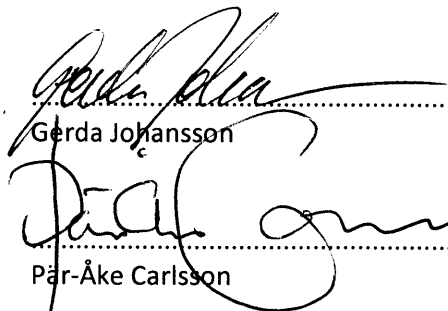 Gerda Johansson
Pär-Åke Carlsson